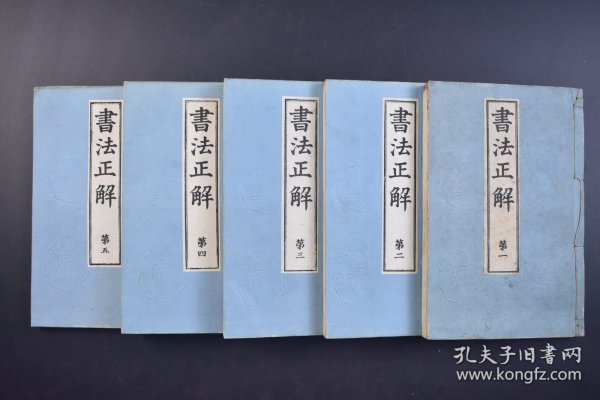 書法正解
第一
書法正解
第二
書法正解
第三
書法正解
第四
書法正解
第五
孔夫子旧書网
www.kongfz.com